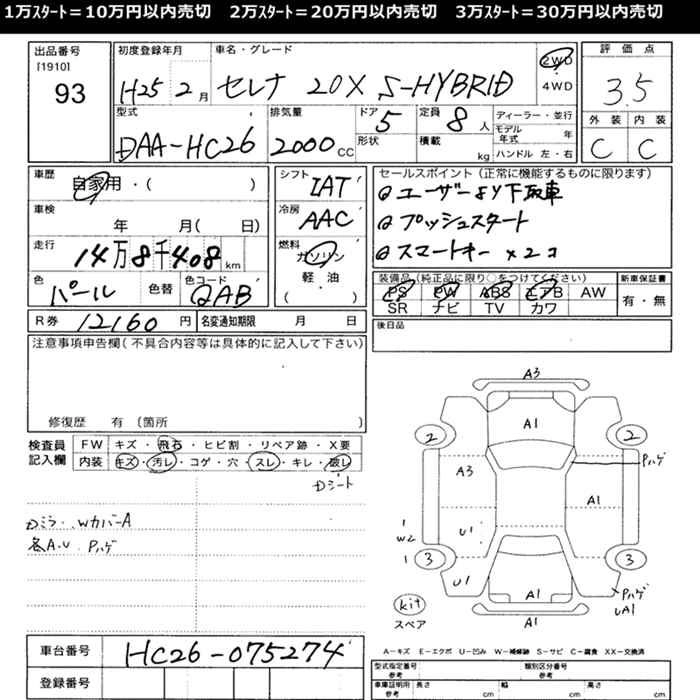 1万ｽﾀｰﾄ＝10万円以内売切　2万ｽﾀｰﾄ＝20万円以内売切　3万ｽﾀｰﾄ＝30万円以内売切
出品番号
[1910]
93
初度登録年月
H25 2月
車名・グレード
セレナ 20X S-HYBRID
2WD
4WD
評価点
3.5
外装 内装
C C
型式
DAA-HC26
排気量
2000 CC
ドア
5
形状
定員
8人
積載
kg
ディーラー・並行
モデル年式 年
ハンドル 左・右
車歴
自家用・( )
車検
年 月( 日)
走行
14万8千408km
色
パール
色替
色コード
QAB
シフト
IAT
冷房
AAC
燃料
ガソリン
・
軽油
( )
セールスポイント（正常に機能するものに限ります）
ユーザーより下取車
プッシュスタート
スマートキー×2コ
装備品（純正品に限り○をつけてください）
PS PW ABS エアB AW
SR ナビ TV カワ
新車保証書
有・無
後日品
R券 12160円
名変通知期限 月 日
注意事項申告欄(不具合内容等は具体的に記入して下さい)
修復歴 有〔箇所 〕
検査員
記入欄
FW キズ・飛石・ヒビ割・リペア跡・X要
内装 キズ・汚レ・コゲ・穴・スレ・キレ・破レ
Dシート
Dミラ・WカバーA
各A.U. Pハゲ
A3
A1
2 2
A3
Pハゲ
A1
1
W2
1
U1
3 3
U1
A1
Pハゲ
UA1
A1
kit
スペア
A－キズ E－エクボ U－凹み W－補修跡 S－サビ C－腐食 XX－交換済
車台番号
HC26-075274
登録番号
型式指定番号
参考
類別区分番号
参考
車庫証明用
参考
長さ cm 幅 cm 高さ cm